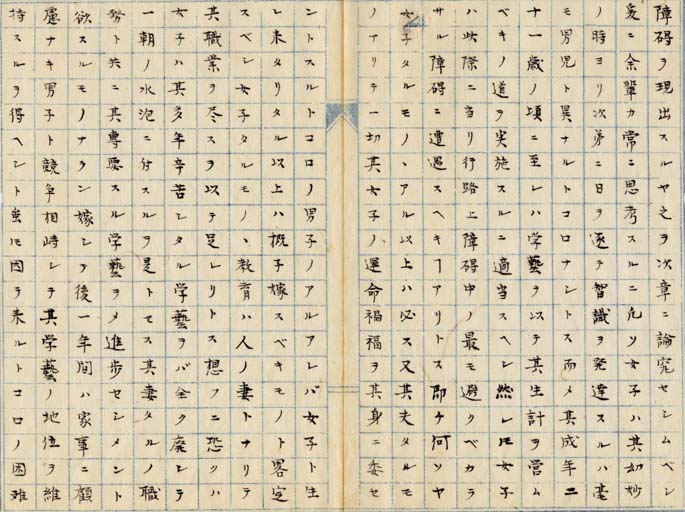 障碍ヲ現出スルヤ之ヲ次章ニ論究セシムベシ
爰ニ余輩カ常ニ思考スルニ凡ソ女子ハ其幼妙
ノ時ヨリ次第ニ日ヲ逐テ智識ヲ発達スルハ毫
モ男児ト異ナルトコロナシトス而メ其成年二
十一歳ノ頃ニ至レハ学藝ヲ以テ其生計ヲ営ム
ベキノ道ヲ実施スルニ適当スヘシ然レ𪜈女子
ハ此際ニ当リ行路上障碍中ノ最モ避クベカラ
サル障碍ニ遭遇スヘキヿアリトス即チ何ソヤ
女子タルモノヽアル以上ハ必ス又其夫タルモ
ノアリテ一切其女子ノ運命禍福ヲ其身ニ委セ
ントスルトコロノ男子ノアルアレバ女子ト生
レ来タリタル以上ハ概子嫁スベキモノト畧定
スベシ女子タルモノヽ教育ハ人ノ妻トナリテ
其職業ヲ尽スヲ以テ足レリトス想フニ恐クハ
女子ハ其多年辛苦シタル学藝ヲバ全ク廃シテ
一朝ノ水泡ニ付スルヲ是トセス其妻タルノ職
務ト共ニ其専要スル学藝ヲメ進歩セシメント
欲スルモノナラン嫁シテ後一年間ハ家事ニ顧
慮ナキ男子ト競争相峙シテ其学藝ノ地位ヲ維
持スルヲ得ヘシト虽𪜈因テ来ルトコロノ困難